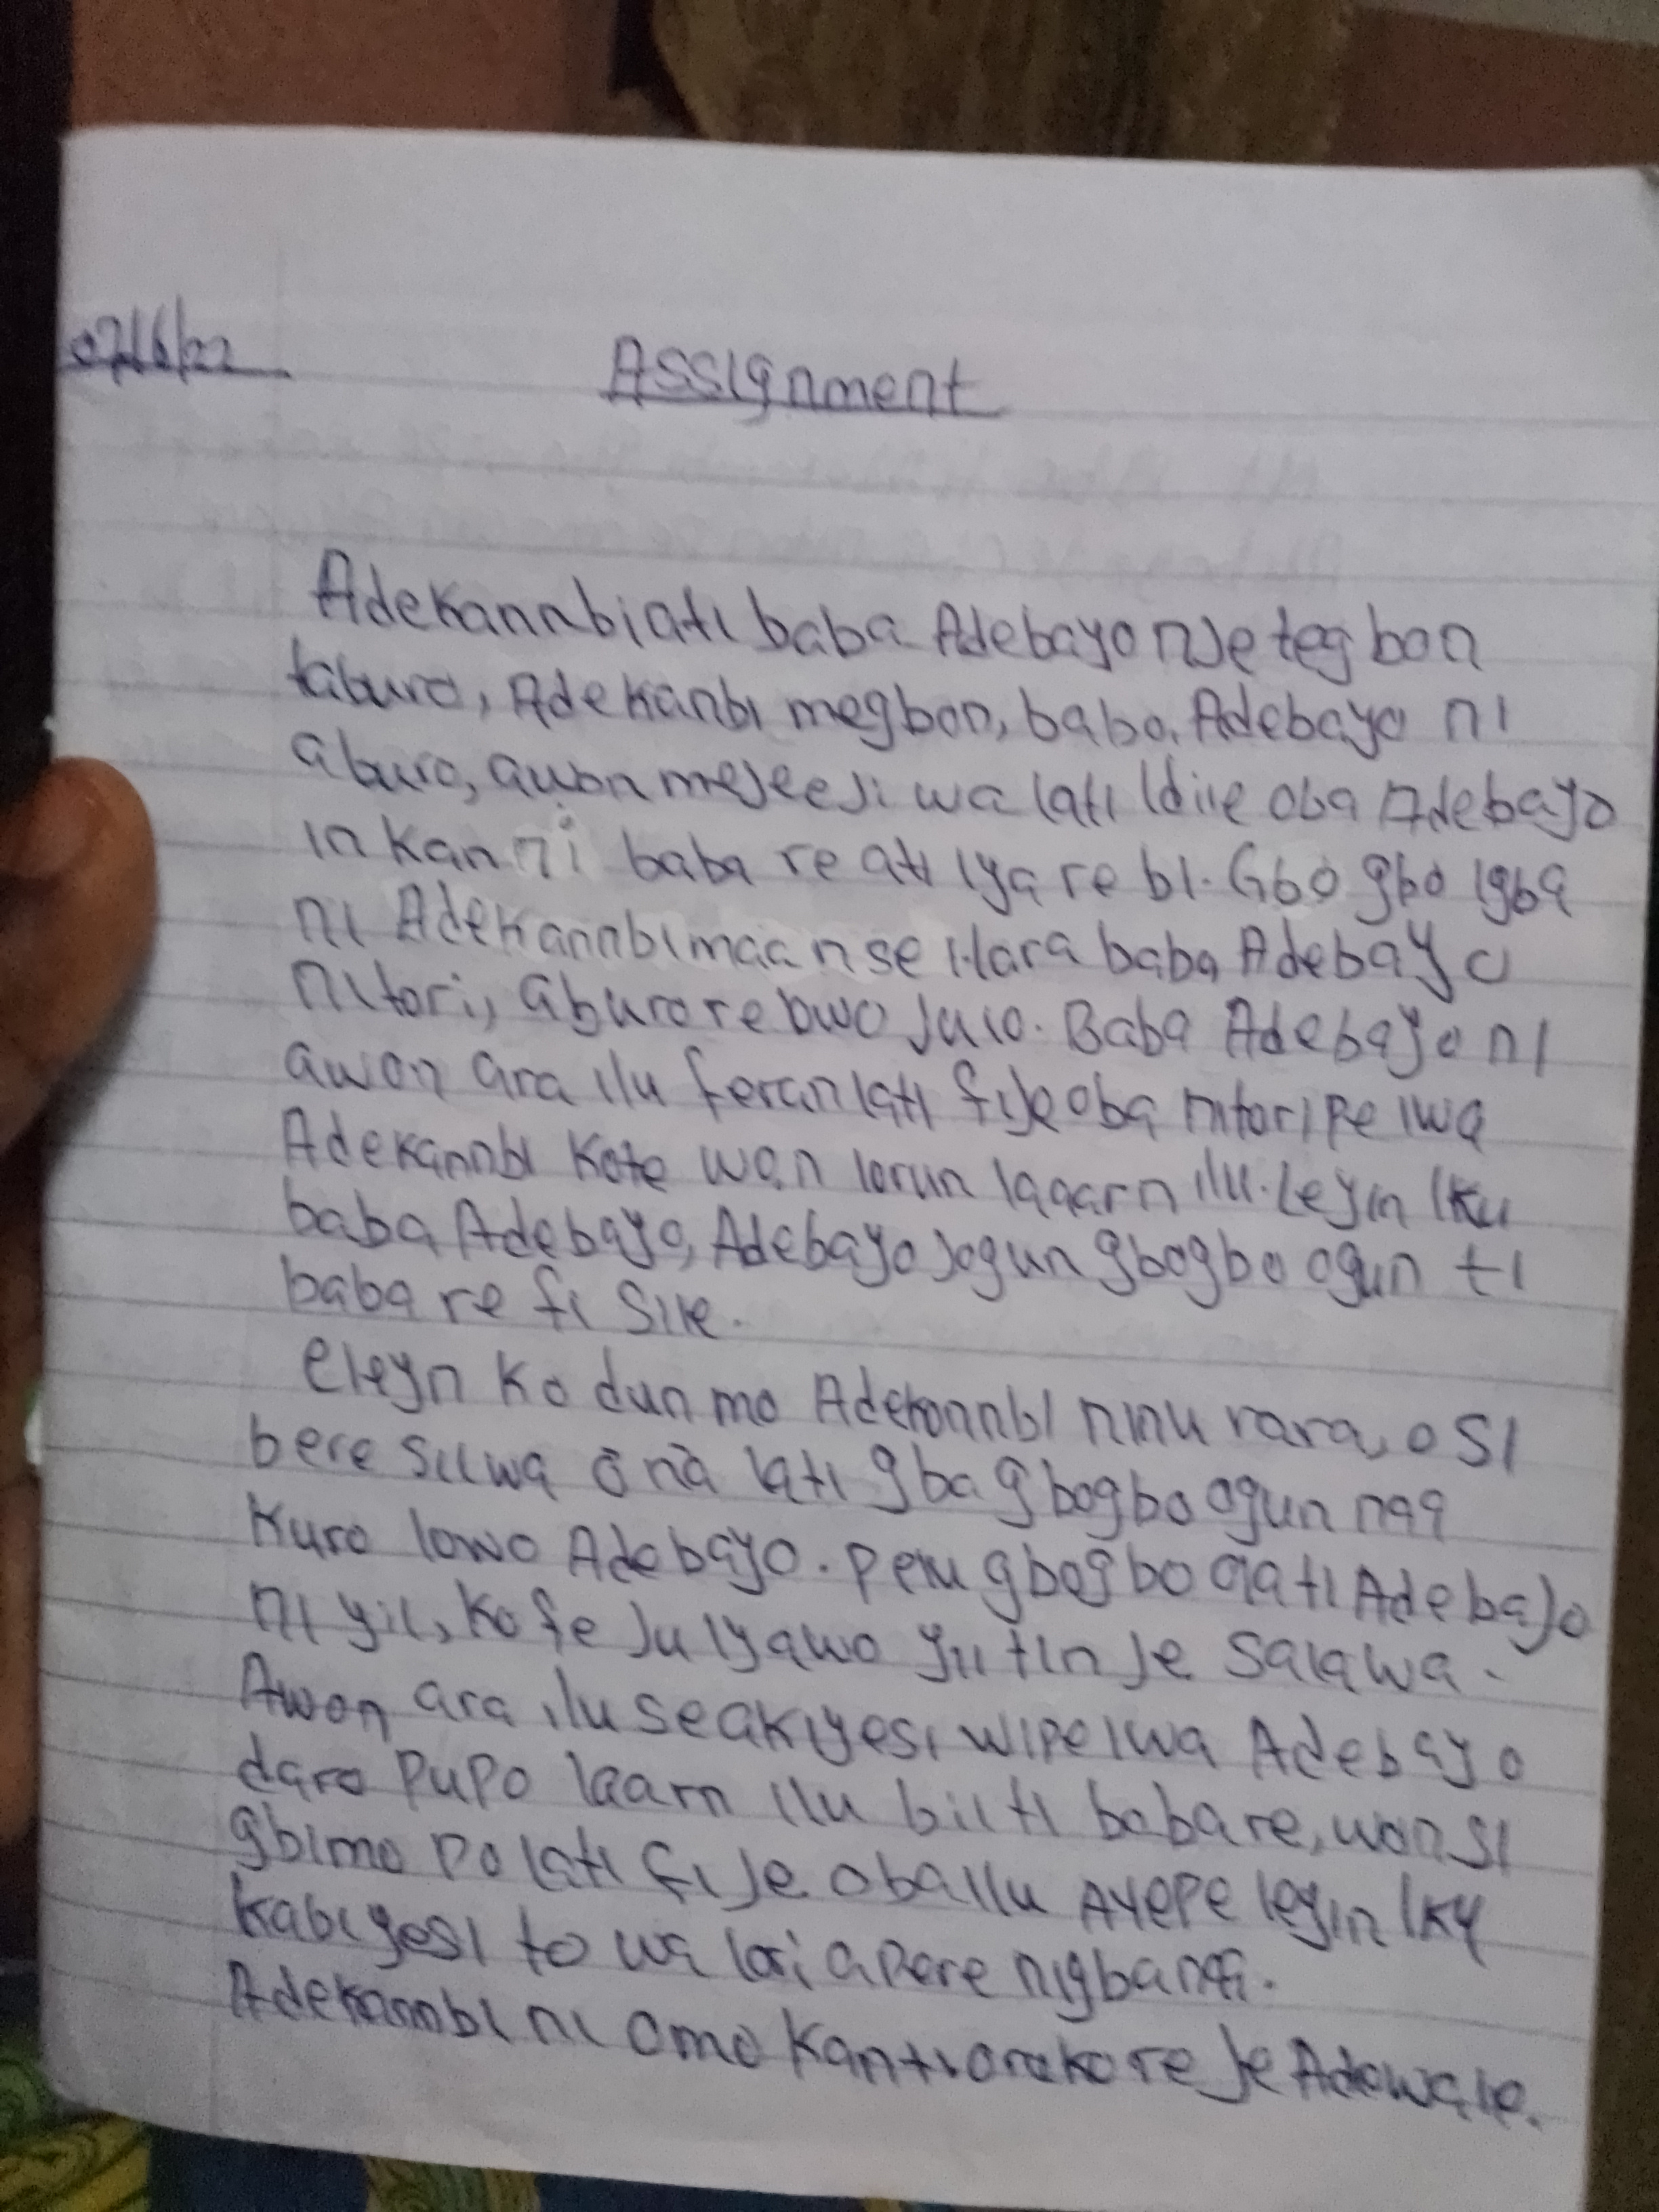 07/6/22
Assignment
Adekannbi ati baba Adebayo nje tegbon
taburo, Adekanbi megbon, baba Adebayo ni
aburo, awon mejeeji wa lati Idile oba Adebayo
inkan ni baba re ati iya re bi. Gbo gbo igba
ni Adekannbi maan se ilara baba Adebayo
nitori, aburo re owo julo. Baba Adebayo ni
awon ara ilu feran lati fi je oba nitori pe iwa
Adekannbi kote won lorun laaarn ilu. Leyin Iku
baba Adebayo, Adebayo jogun gbogbo ogun ti
baba re fi sile.
eleyn ko dun mo Adekannbi ninu rara, o si
bere si iwa ona lati gba gbogbo ogun naa
kuro lowo Adebayo. pelu gbogbo ola ti Adebayo
ni yii, ko fe ju Iyawo yii tin je Salawa.
Awon ara ilu se akiyesi wipe iwa Adebayo
daro pupo laarn ilu bii ti baba re, won si
gbimo po lati fi je oba Ilu AYEPE leyin Iku
kabiyesi to wa lori apere nigbana.
Adekannbi ni omo kan ti oruko re je Adewale.